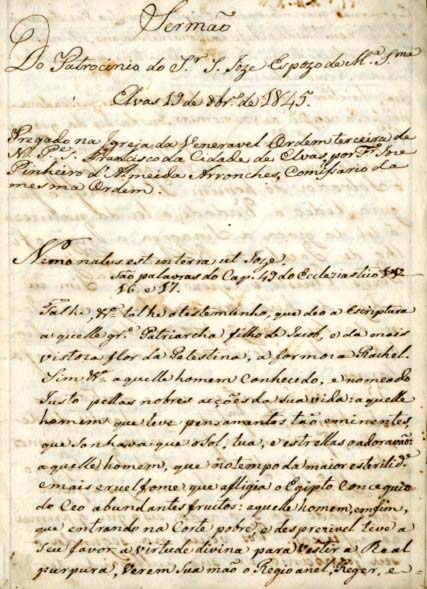 Sermão
Do Patrocinio do Sr. S. Joze Espozo de Ma. Sma
Elvas 19 de Abrl. de 1845.
Pregado na Igreja da Veneravel Ordem terceira de
N. P. S. Francisco da Cidade de Elvas, por Fr. Joze
Pinheiro d'Almeida Arronches, Comisario da
mesma Ordem.
Nemo natus est in terra ut Joze.
São palavras do Cap. 49 do Eccleziastico
16 e 17.
Tal he, tal he o testemunho, que deo a Escriptura
a quelle gr.e Patriarcha filho de Jacob, e da mais
vistoza flor da Palestina, a formoza Rachel.
Sim aquelle homem conhecido, e nomeado
Justo pellas nobres acções da sua vida: aquelle
homem que teve pensamentos tão eminentes,
que sonhava que o Sol, lua, e estrellas o adoravão:
aquelle homem, que no tempo da maior esterilide.
e mais cruel fome que affligia o Egipto conceguio
do Ceo abundantes fructos: aquelle homem, emfim,
que entrando na Corte pobre e desprezivel teve a
seu favor a virtude divina para vestir a Real
purpura, verem sua mão o Regio anel, Reger, e-